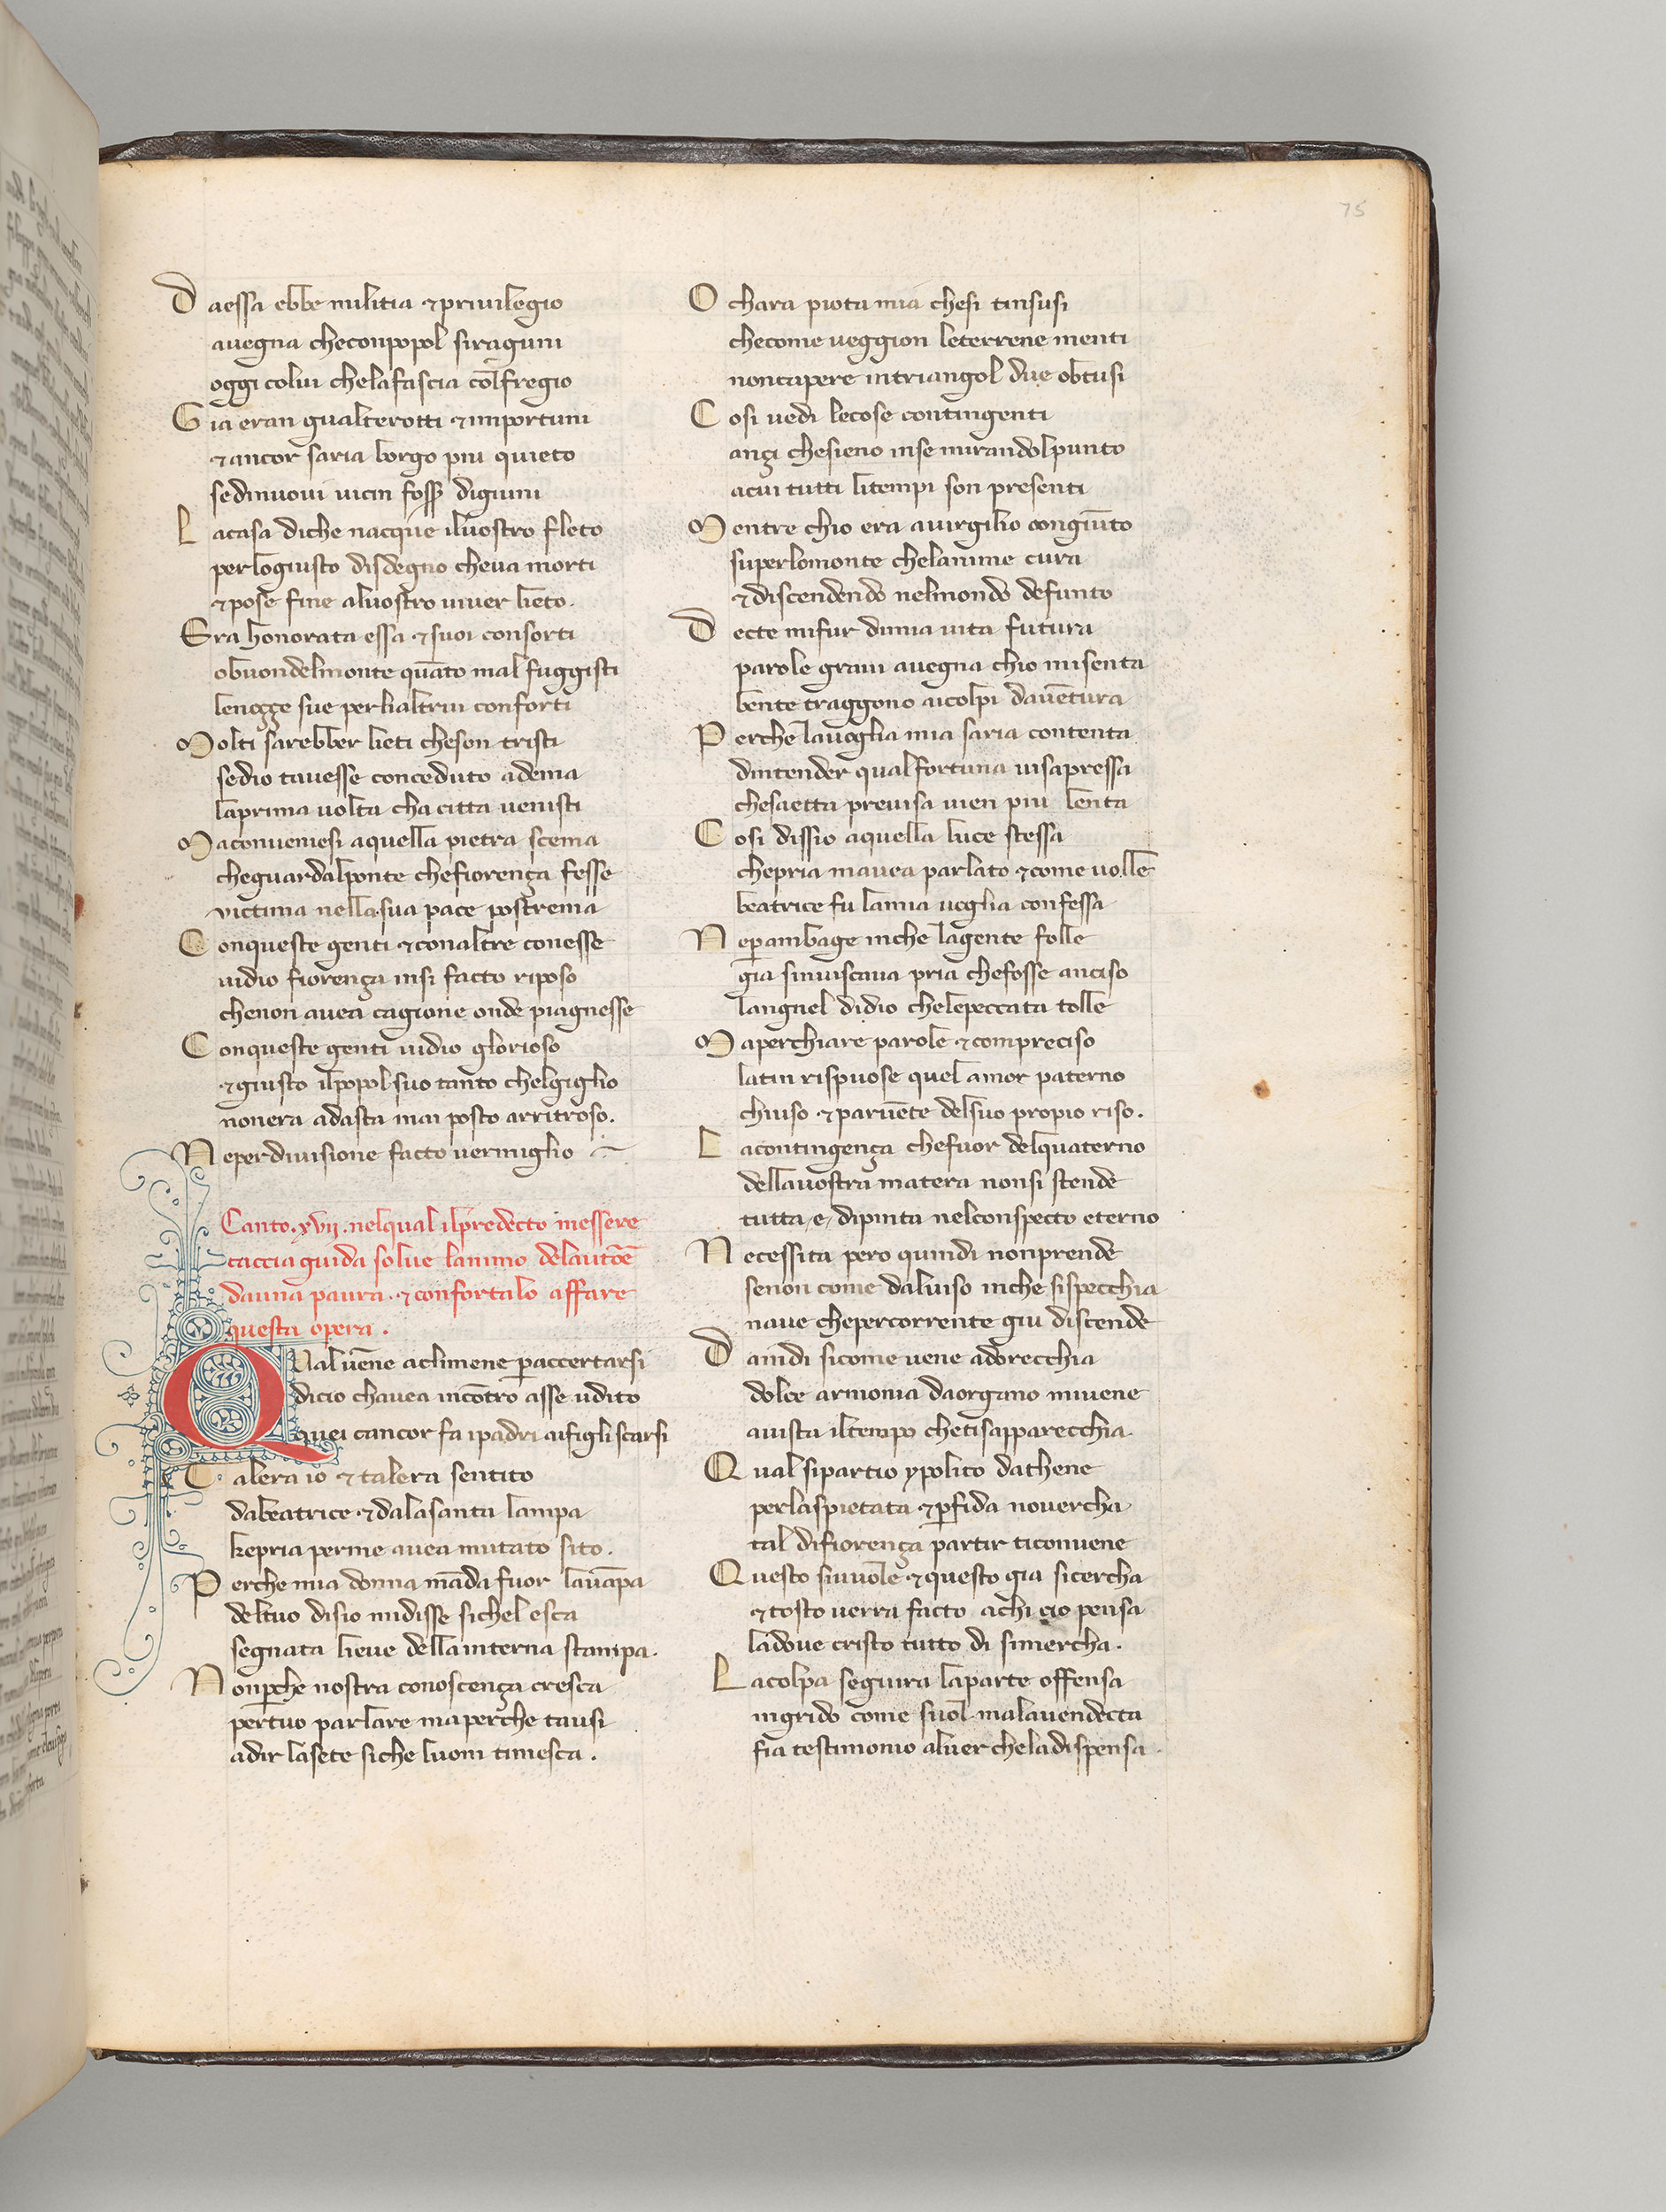 75
Daessa ebbe militia ⁊ priuilegio
auegna checonpopol siraguni
oggi colui chelafascia col fregio
Gia eran gualterotti ⁊ importuni
⁊ ancor saria borgo piu quieto
sedinuoui uicin foss̄ digiuni
Lacasa diche nacque iluostro fleto
perlogiusto disdegno cheua morti
⁊ pose fine aluostro uiuer lieto.
Era honorata essa ⁊ suoi consorti
obuondelmonte quāto mal fuggisti
lenoçze sue perlialtrui conforti
Molti sarebber lieti cheson tristi
sedio tauesse conceduto adema
laprima uolta cha citta uenisti
Maconueniesi aquella pietra scema
cheguardalponte chefiorença fesse
uictima nella sua pace postrema
Conqueste genti ⁊ conaltre conesse
uidio fiorença insi facto riposo
chenon auea cagione onde piagnesse
Conqueste genti uidio glorioso
⁊ giusto ilpopol suo tanto chelgiglio
nonera adasta mai posto arritroso.
Neperdiuisione facto uermiglio
Canto. xvij. nelqual ilpredecto messere
cacciaguida solue lanimo delautōē
dauna paura. ⁊ confortalo affare
questa opera.
Qual uēne aclimene paccertarsi
dicio chauea incōtro asse udito
quei cancor fa ipadri aifigli scarsi
Talera io ⁊ talera sentito
dabeatrice ⁊ dalasanta lampa
kepria perme auea mutato sito.
Perche mia donna māda fuor lauāpa
deltuo disio midisse sichel esca
segnata lieue dellainterna stampa.
Nonpche nostra conoscença cresca
pertuo parlare maperche tausi
adir lasete siche luom timesca.
O chara piota mia chesi tinsusi
checome ueggion leterrene menti
noncapere intriangol due obtusi
Cosi uedi lecose contingenti
ançi chesieno inse mirandolpunto
acui tutti litempi son presenti
Mentre chio era auirgilio congiūto
superlomonte chelanime cura
⁊ discendendo nelmondo defunto
Decte mifur dimia uita futura
parole graui auegna chio misenta
bente traggono aicolpi dauētura
Perche lauoglia mia saria contenta
dintender qual fortuna misapressa
chesaetta preuisa uien piu lenta
Cosi dissio aquella luce stessa
chepria mauea parlato ⁊ come uolle
beatrice fu lamia uoglia confessa
Nepambage inche lagente folle
gia sinuiscaua pria chefosse anciso
langnel didio chelepeccata tolle
Maperchiare parole ⁊ compreciso
latin rispuose quel amor paterno
chiuso ⁊ paruēte delsuo propio riso.
Lacontingença chefuor delquaterno
dellauostra matera nonsi stende
tutta e dipinta nelconspecto eterno
Necessita pero quindi nonprende
senon come daluiso inche sispecchia
naue chepercorrente giu discende
Daindi sicome uene adorecchia
dolce armonia daorgano miuene
auista iltempo chetisapparecchia.
Qual sipartio ypolito dathene
perlaspietata ⁊ pfida nouercha
tal difiorença partir ticonuene
Questo siuuole ⁊ questo gia sicercha
⁊ tosto uerra facto achi cio pensa
ladoue cristo tutto di simercha.
Lacolpa seguira laparte offensa
ingrido come suol malauendecta
fia testimonio aluer cheladispensa.